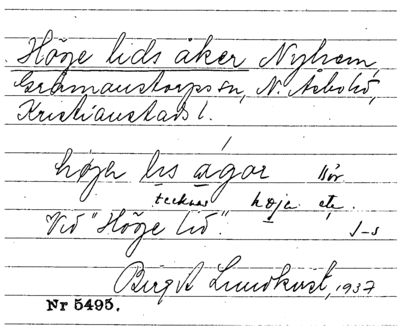 Höge lids åker Nyhem,
Gråmanstorps sn, N. Åsbo hd,
Kristianstads l.
høja lis ågar
tecknas høja etc.
Vid "Höge lid".
J-s
Birgit Lundkvist, 1937
Nr 5495.